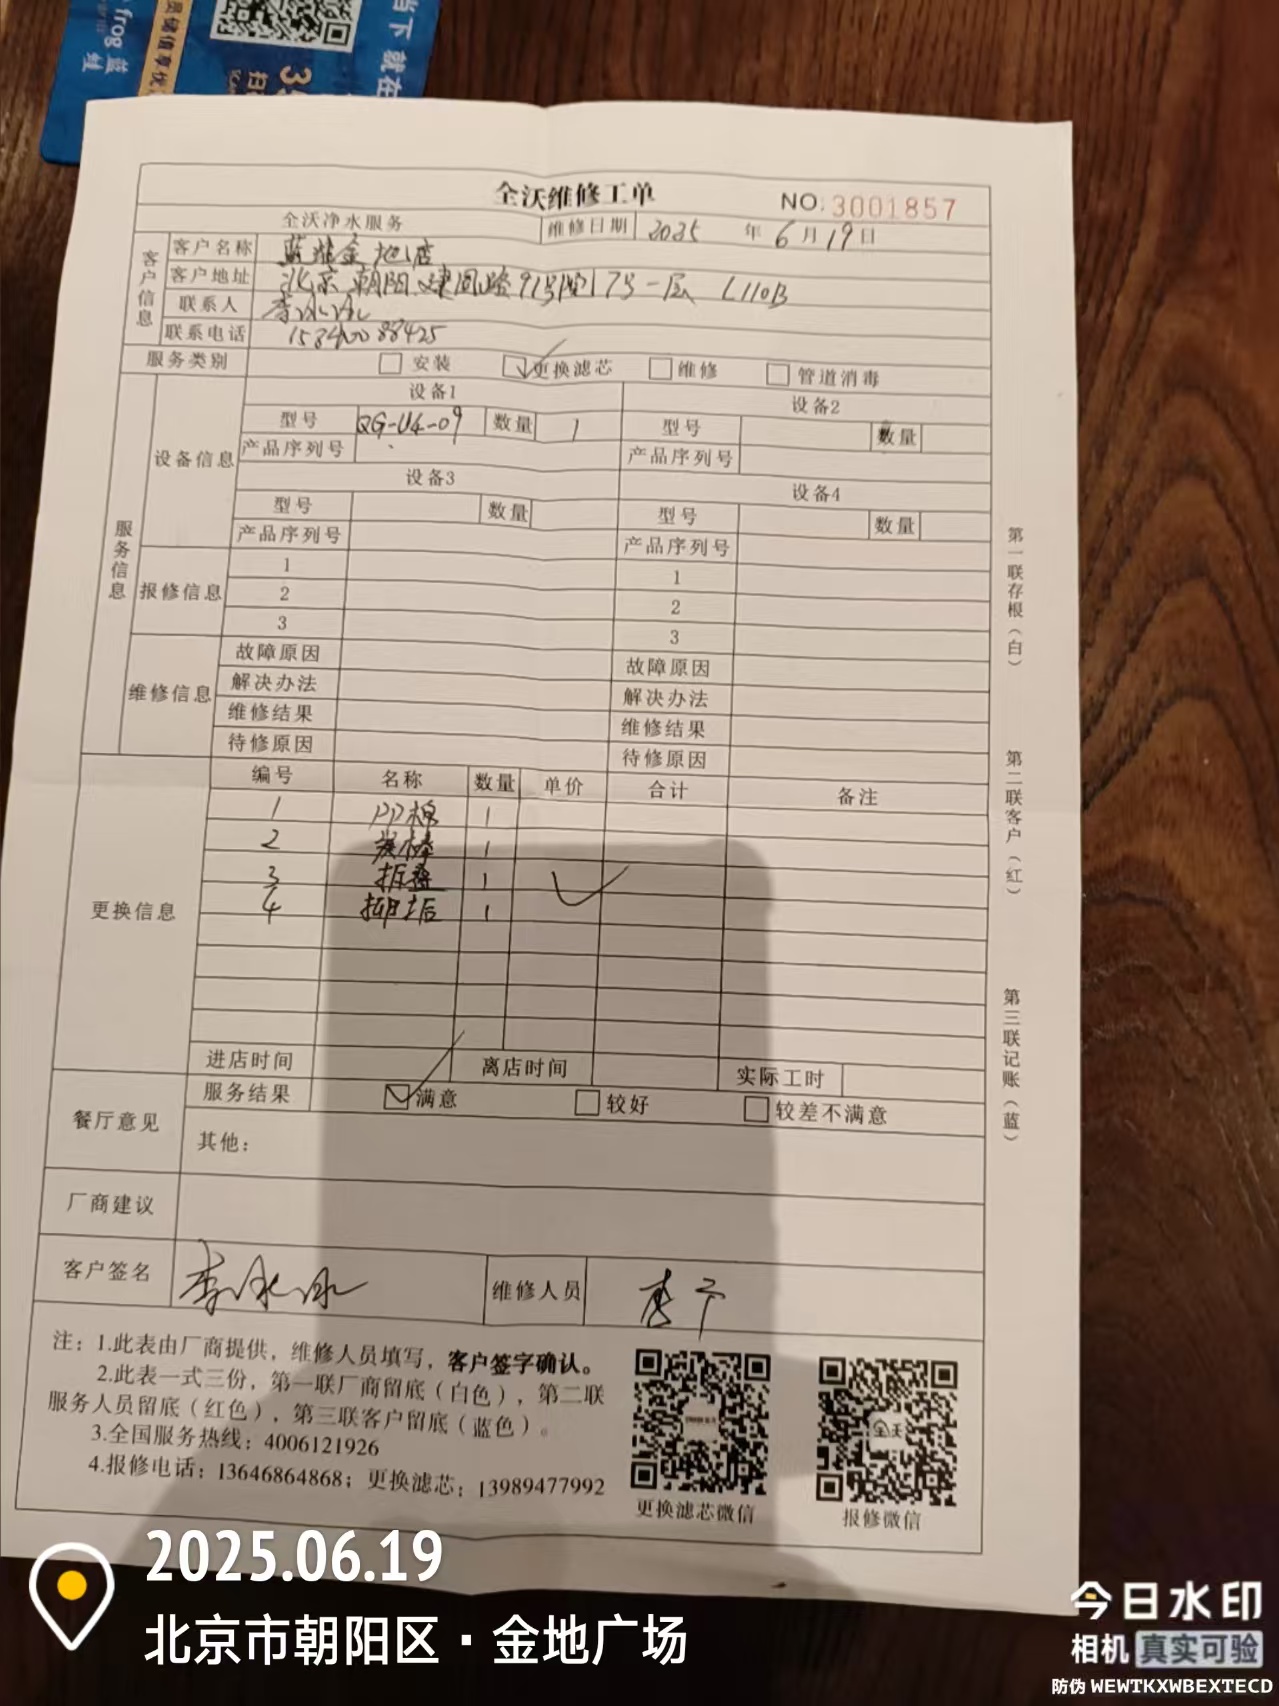 frog 蓝蛙
全沃维修工单
NO.3001857
全沃净水服务 维修日期 2025 年 6 月 19 日
客户信息
客户名称 蓝蛙金地店
客户地址 北京朝阳建国路91号院17号一层 L110B
联系人 李冰冰
联系电话
服务类别 安装 更换滤芯 维修 管道消毒
服务信息
设备信息
设备1 设备2
型号 QG-U4-09 数量 1 型号 数量
产品序列号 产品序列号
设备3 设备4
型号 数量 型号 数量
产品序列号 产品序列号
报修信息
1 1
2 2
3 3
维修信息
故障原因 故障原因
解决办法 解决办法
维修结果 维修结果
待修原因 待修原因
更换信息
编号 名称 数量 单价 合计 备注
1 PP棉 1
2 炭棒 1
3 折叠 1
4 1
进店时间 离店时间 实际工时
餐厅意见
服务结果 满意 较好 较差不满意
其他：
厂商建议
客户签名 李冰冰 维修人员
注：1.此表由厂商提供，维修人员填写，客户签字确认。
2.此表一式三份，第一联厂商留底（白色），第二联
服务人员留底（红色），第三联客户留底（蓝色）。
3.全国服务热线：4006121926
4.报修电话：13646864868；更换滤芯：13989477992
更换滤芯微信
报修微信
第一联存根（白）
第二联客户（红）
第三联记账（蓝）
2025.06.19
北京市朝阳区·金地广场
今日水印
相机 真实可验
防伪 WEWTKXWBEXTECD